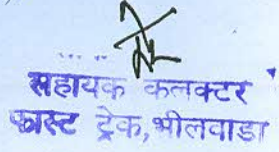 सहायक कलक्टर
फास्ट ट्रेक,भीलवाडा